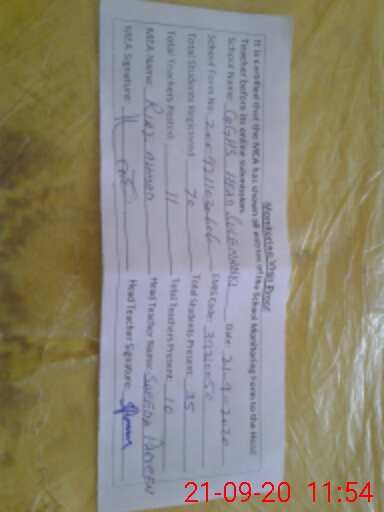 Monitoring Visit Proof
It is certified that the MEA has shown all entries of the School Monitoring Form to the Head
Teacher before its online submission.
School Name: GGHS HEAD SULEMANKI Date: 21-9-2020
School Form No: EMIS Code:
Total Students Registered: 70 Total Students Present: 35
Total Teachers Posted: 11 Total Teachers Present: 10
MEA Name: RIAZ AHMAD Head Teacher Name: PARVEEN
MEA Signature: Head Teacher Signature:
21-09-20 11:54